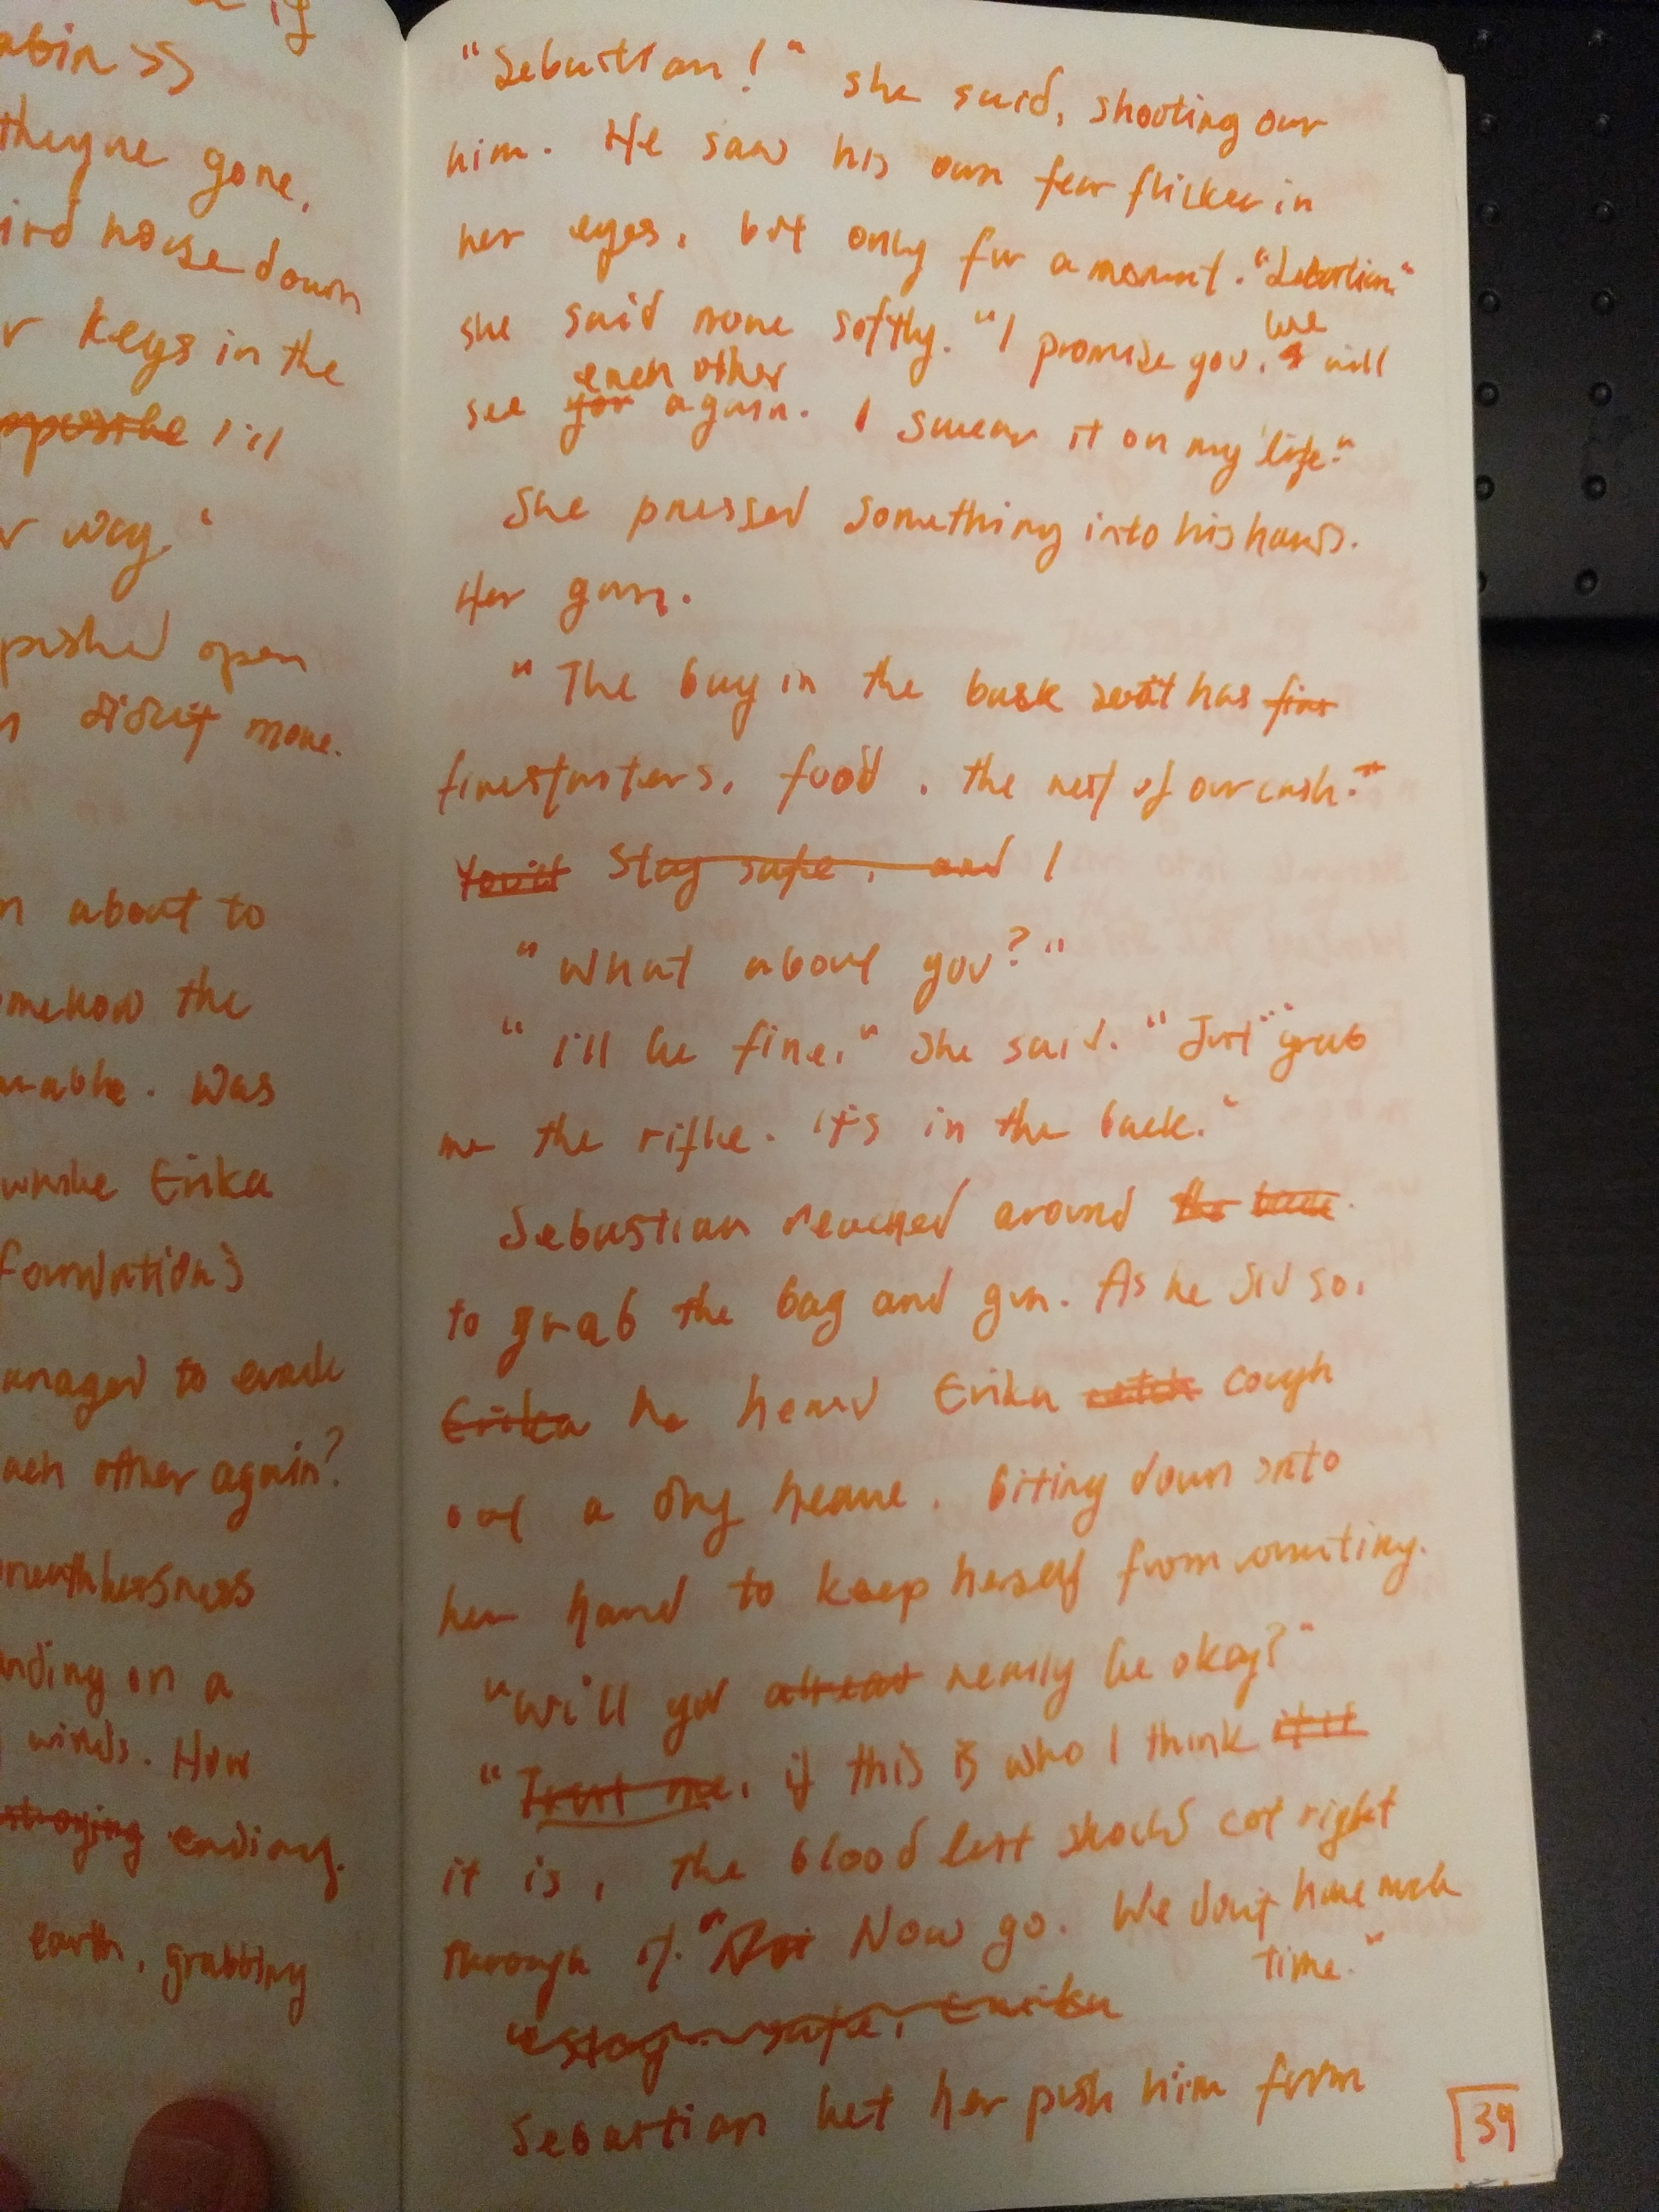 abin >>
they're gone,
ird noise down
r keys in the
opposite I'll
r way."
pushed open
n didn't move.
n about to
mehow the
was
Erika
foundations
anaged to evade
ach other again?
nding on a
winds. How
ending.
earth, grabbing
"Sebastian!" she said, shooting over
him. He saw his own fear flicker in
her eyes, but only for a moment. "Sebastian."
she said more softly. "I promise you, we will
see each other again. I swear it on my life."
She pressed something into his hands.
Her gun.
"The bag in the back seat has fire
firestarters, food, the rest of our cash."
You'll Stay safe, and I
"What about you?"
"I'll be fine," she said. "Just grab
me the rifle. It's in the back."
Sebastian reached around the back
to grab the bag and gun. As he did so,
Erika he heard Erika cough
out a dry heave, biting down onto
her hand to keep herself from vomiting.
"Will you really be okay?"
"Trust me, if this is who I think it is
it is, the bloodlust should cut right
through it." Now go. We don't have much
time."
"Stay safe, Erika
Sebastian let her push him form
39